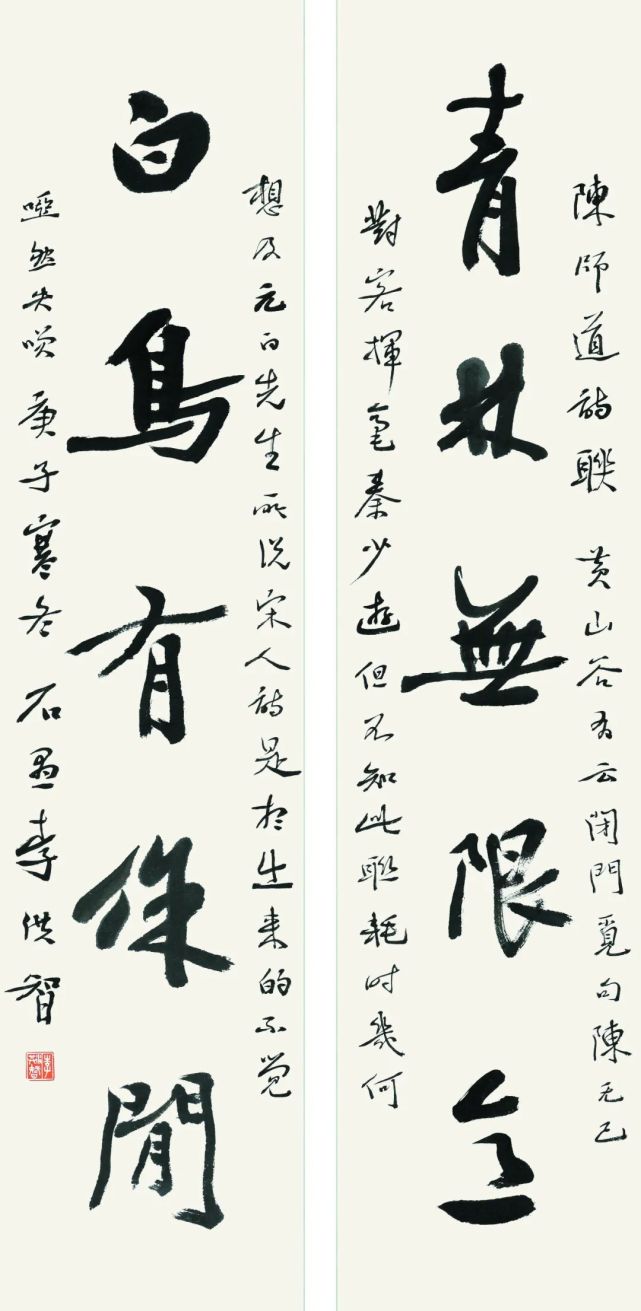 陳師道詩聯 黃山谷有云閉門覓句陳无己
青林無限意
對客揮毫秦少遊但不知此聯耗时幾何
想及元白先生所说宋人詩是想出来的不觉
白鳥有餘閒
啞然失笑 庚子寒冬 石愚李洪智